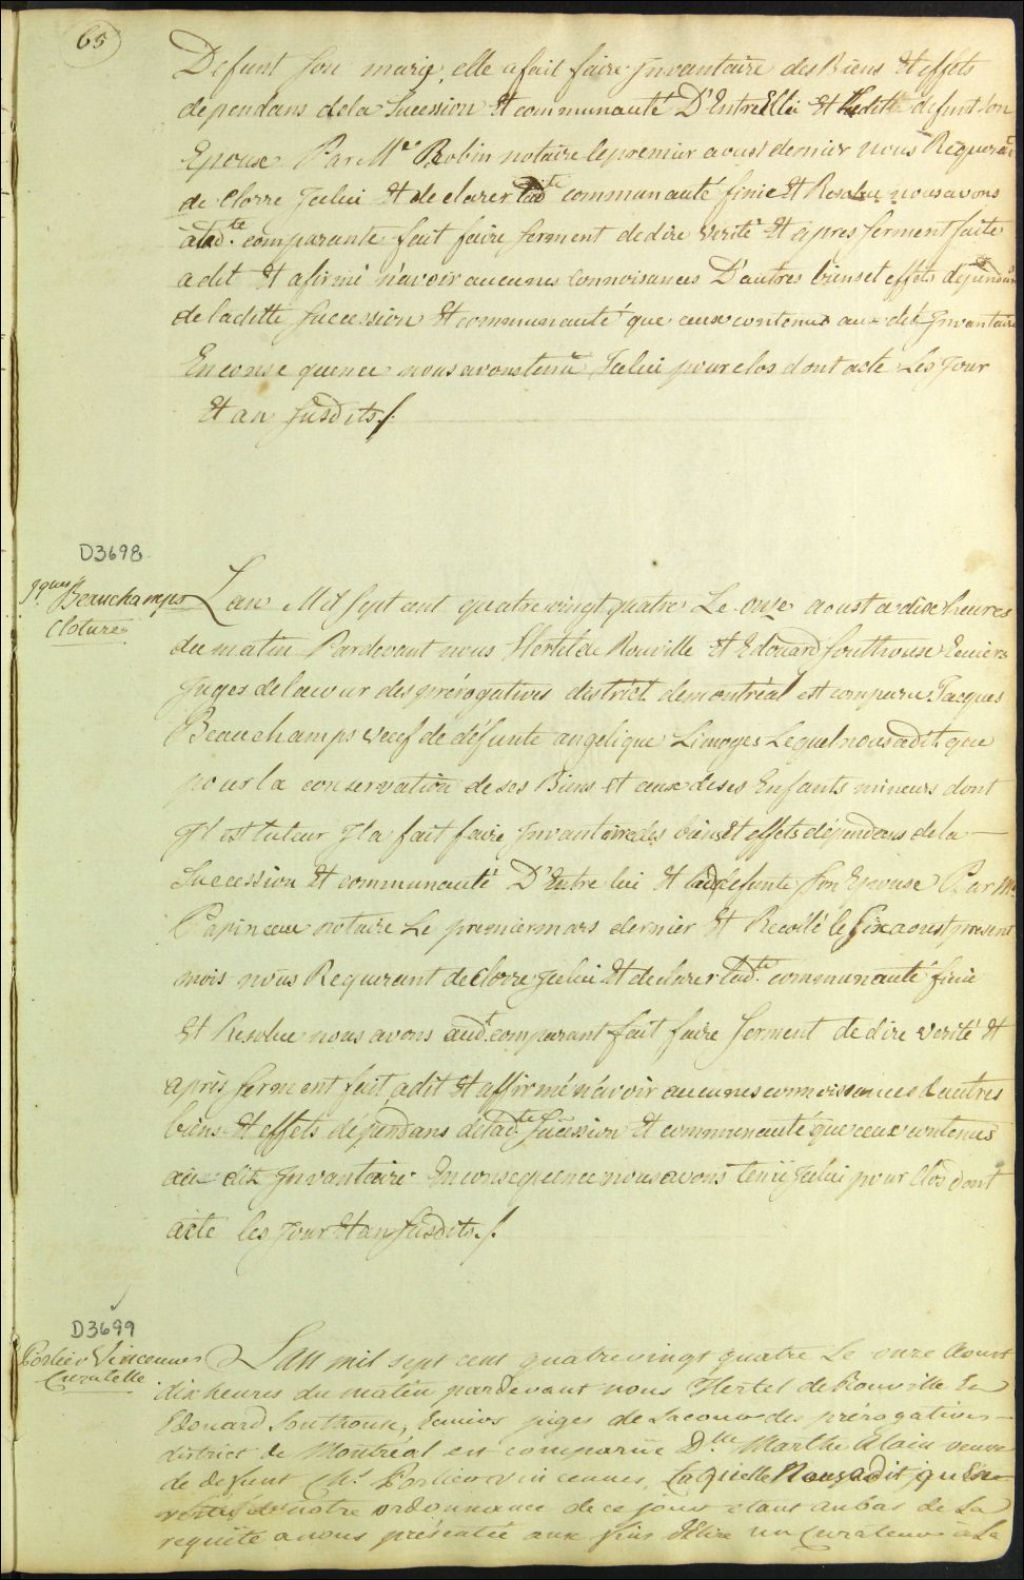 65
Defunt son marie, elle a fait faire Jnvantaire des Biens Et effets
dependans dela Sucession Et communauté D'Entre Elle Et Ledit defunt son
Epoux Par Me Robin notaire le premier aoust dernier nous Requerant
de Clorre Jcelui Et de clarer ladte communauté finie Et Resolue nous avons
a ladte comparante fait faire serment de dire verité Et apres serment faite
a dit Et afirmé n'avoir aucunes connoisances D'autres biens et effets dépendans
de ladette succession Et communauté que ceux contenus au dit Jnvantaire
En conse quence nous avons tenu Jcelui pour clos dont acte Les Jour
Et an Susdits./.
D3698
Jques Beauchamps
Cloture
Lan Mil Sept cent quatre vingt quatre Le onze aoust a dix heures
du matin Pardevant nous Hertel de Rouville Et Edouard Southouse Ecuiers
Juges de la cour des prérogatives district de montréal est comparu Jacques
Beauchamps veuf de défunte angelique Limoges Lequel nous a dit que
pour la conservation de ses Biens et ceux de ses Enfants mineurs dont
Jl est tuteur Jl a fait faire Jnvantaire des biens Et effets dépendans de la
Succession Et communauté D'Entre lui Et lad defunte son Epouse Par Me
Papineau notaire Le premier mars dernier Et Recollé le six aoust present
mois nous Requerant de Clorre Jcelui Et declarer ladte communauté finie
Et Resolue nous avons audt comparant fait faire serment de dire verité Et
après serment fait a dit Et affirmé n'avoir aucunes connoissances d'autres
biens Et effets dépendans deladte Sucession Et communauté que ceux contenus
au dit Jnvantaire En consequence nous avons tenu Jcelui pour Clos dont
acte les Jour Et an susdits./.
D3699
Porlier Vincennes
Curatelle
L'an mil sept cent quatre vingt quatre Le onze Aoust
dix heures du matin pardevant nous Hertel de Rouville Et
Edouard Southouse, Ecuiers juges de la cour des prérogatives
district de Montréal est comparüe Dlle Marthe Alain veuve
de defunt Porlier vincennes, Laquelle Nous a dit, qu'En
vertu de notre ordonnance de ce jour etant aubas de La
requête a nous présentée aux fins d'Elire un Curateur a La